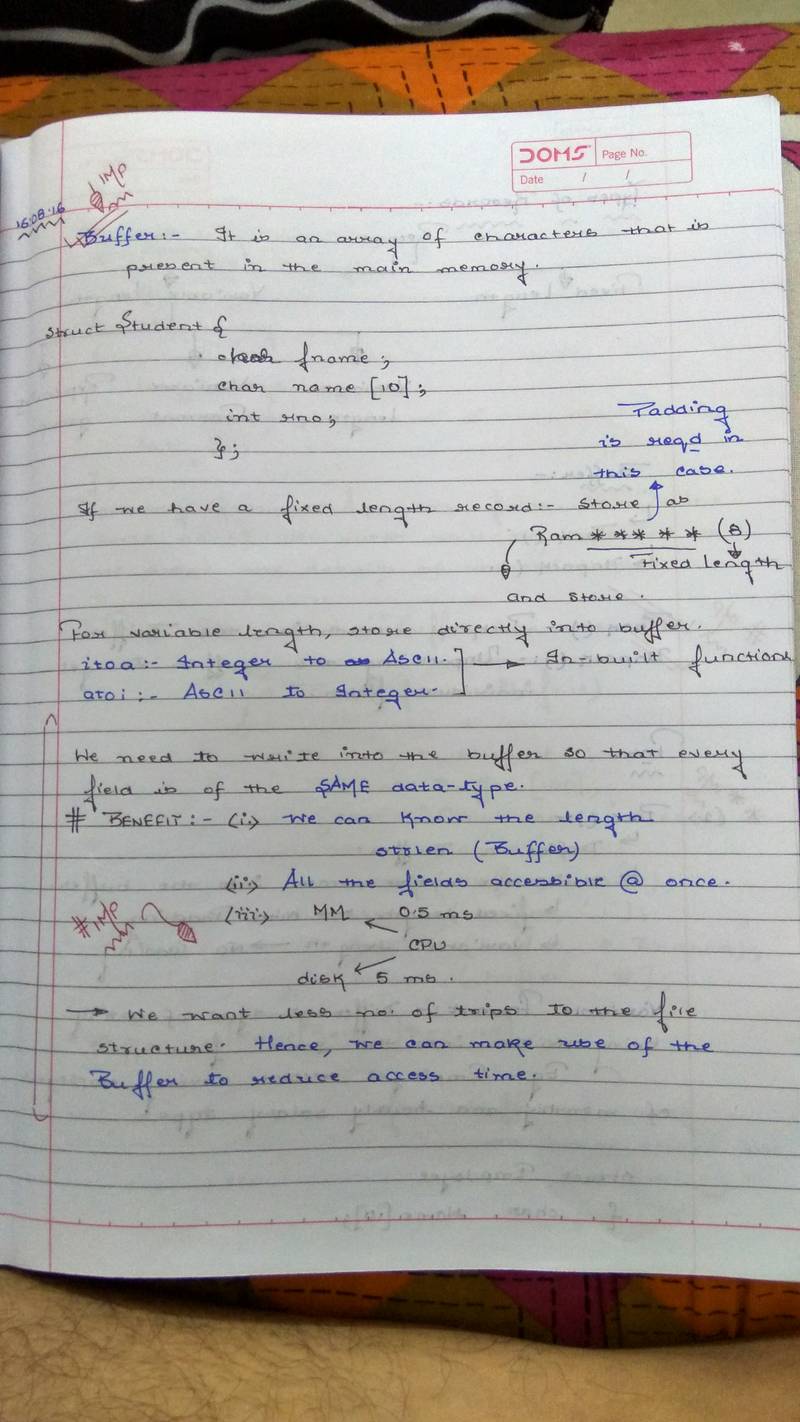 DOMS Page No.
Date / /
IMP
16.08.16
Buffer:- It is an array of characters that is
present in the main memory.
struct Student {
fname;
char name [10];
int rno;
};
Padding
is reqd in
this case.
If we have a fixed length record:- Store as
Ram * * * * * (8)
Fixed length
and store.
For variable length, store directly into buffer.
itoa:- Integer to ASCII. → In-built functions
atoi:- ASCII to Integer.
We need to write into the buffer so that every
field is of the SAME data-type.
# BENEFIT:- (i) We can know the length
stolen (Buffer)
(ii) All the fields accessible @ once.
#IMP (iii) MM 0.5 ms
CPU
disk 5 ms.
→ We want less no. of trips to the file
structure. Hence, we can make use of the
Buffer to reduce access time.